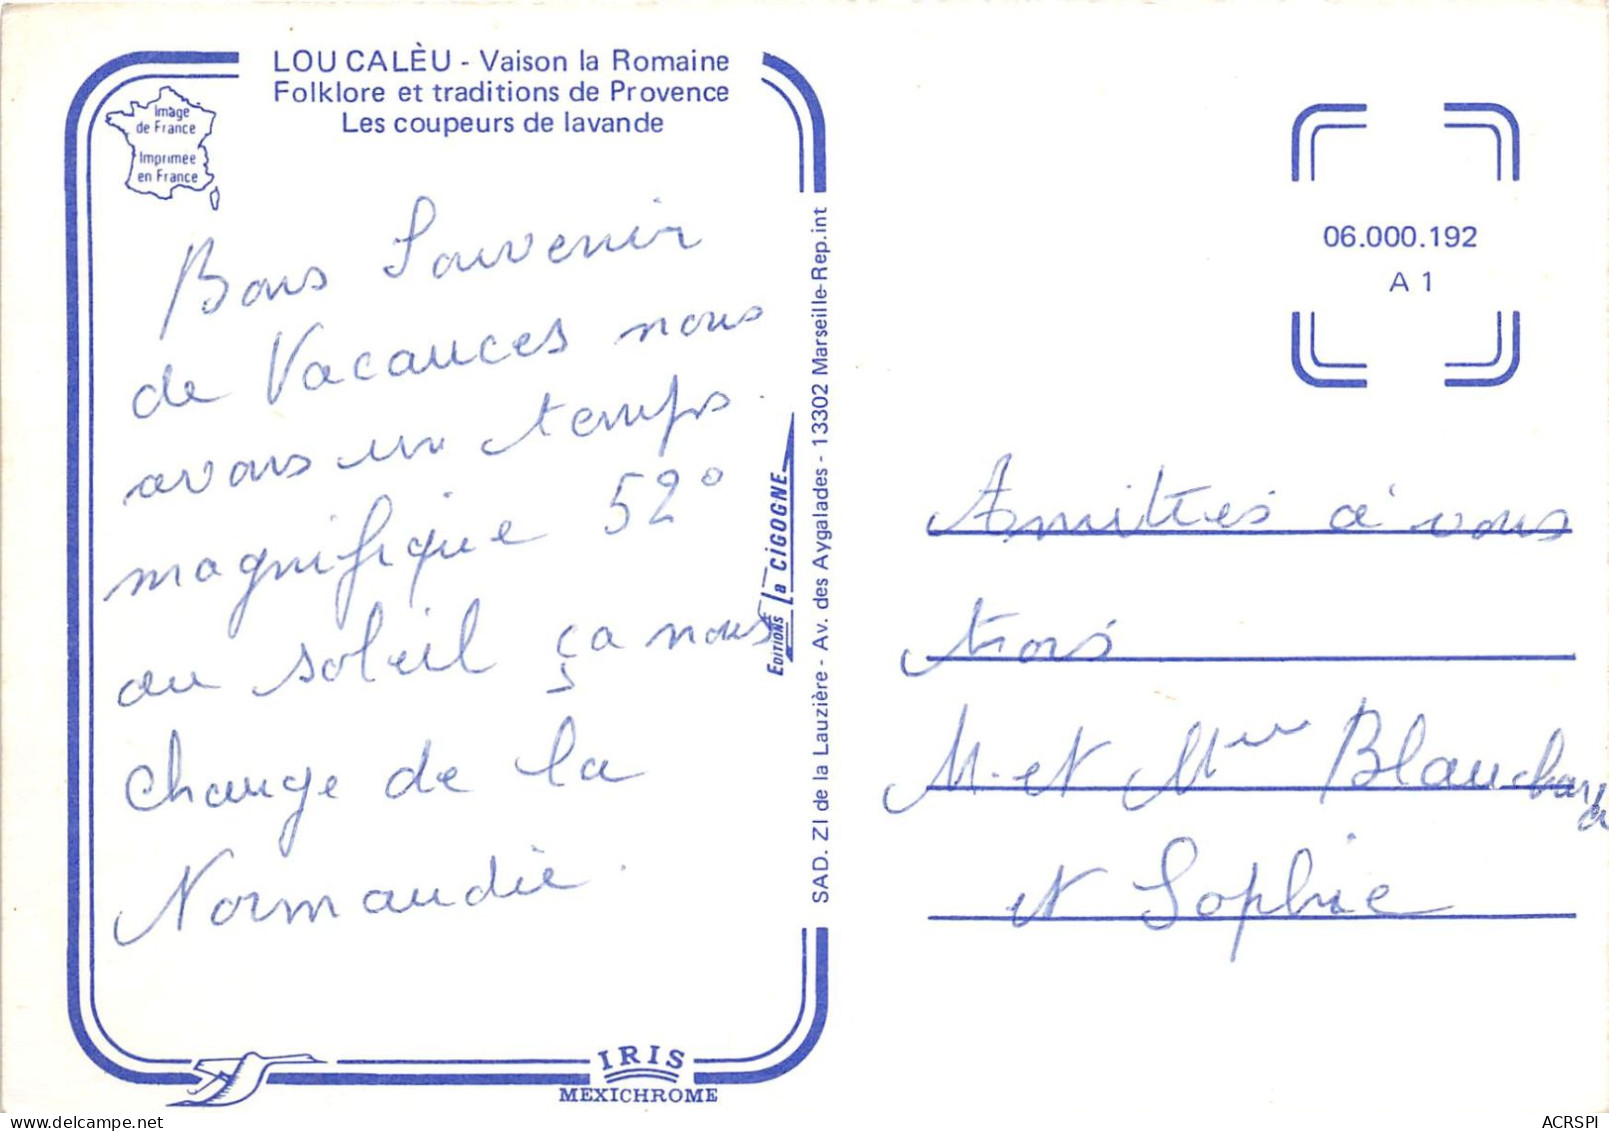 LOU CALÈU - Vaison la Romaine
Folklore et traditions de Provence
Les coupeurs de lavande
Image
de France
Imprimée
en France
Bons Souvenir
de Vacances nous
avons un temps
magnifique 52°
au soleil ça nous
change de la
Normandie.
EDITIONS La CIGOGNE
SAD. ZI de la Lauzière - Av. des Aygalades - 13302 Marseille-Rep.int
IRIS
MEXICHROME
06.000.192
A 1
Amitiés à vous
trois
M. et Mme Blanchard
et Sophie
ACRSPI